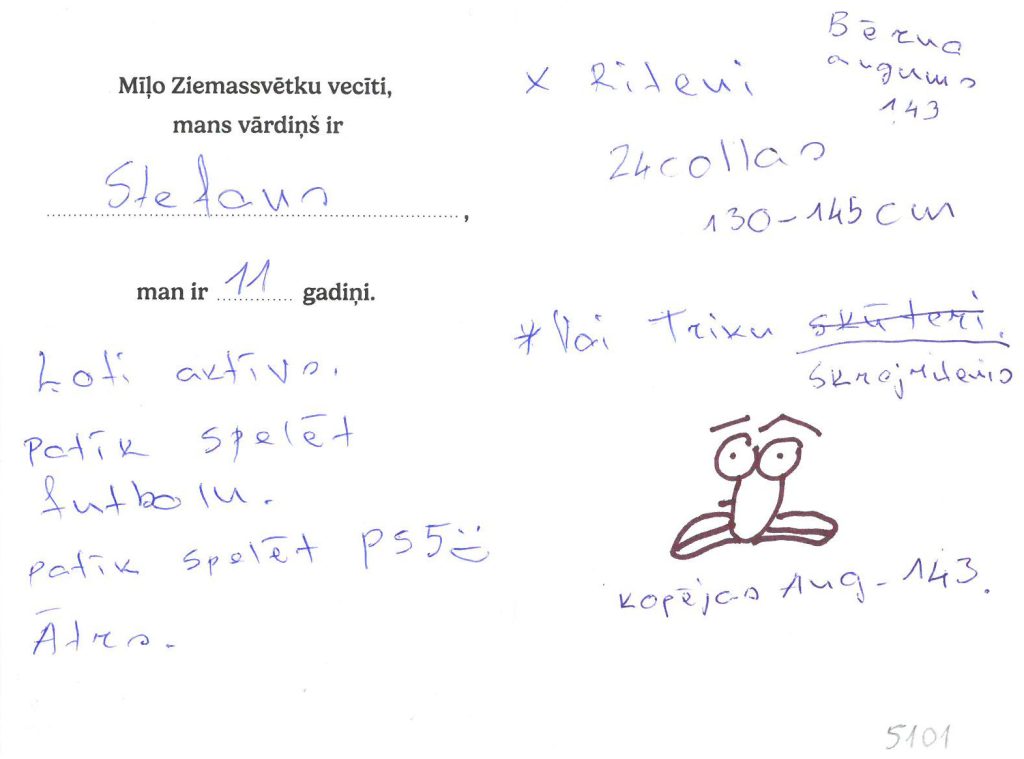 Mīļo Ziemassvētku vecīti,
mans vārdiņš ir
Stefans,
man ir 11 gadiņi.
Ļoti aktīvs.
Patīk spēlēt
futbolu.
patīk spelēt PS5
Ātrs.
Bērna
augums
143
x Riteni
24collas
130-145cm
*Vai Triku skūteri.
skrejritenis
kopējas Aug - 143.
5101